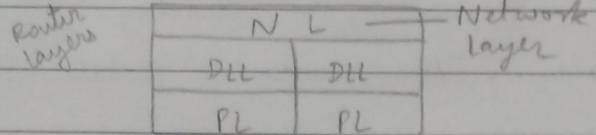 Router
layers
N L
Network
layer
DLL DLL
PL PL